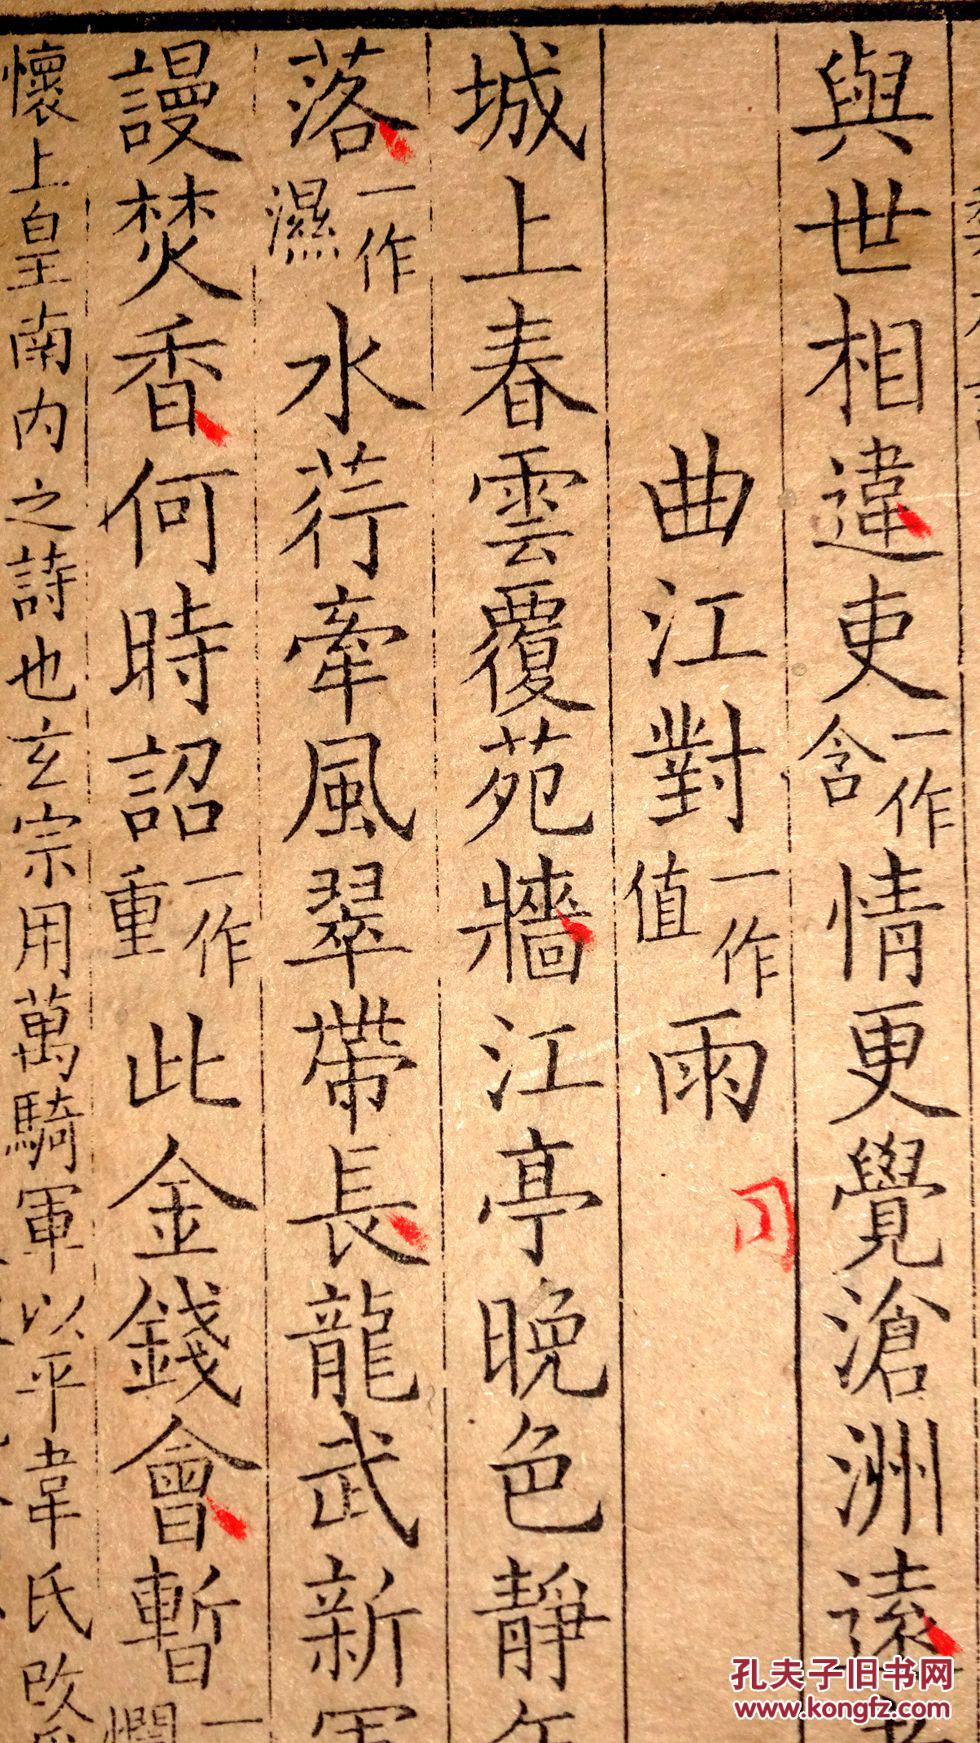 與世相違吏一作含情更覺滄洲遠
曲江對一作值雨
城上春雲覆苑牆江亭晚色靜
落一作濕水荇牽風翠帶長龍武新軍
謾焚香何時詔一作重此金錢會暫一
懷上皇南内之詩也玄宗用萬騎軍以平韋氏改
孔夫子旧书网
www.kongfz.com